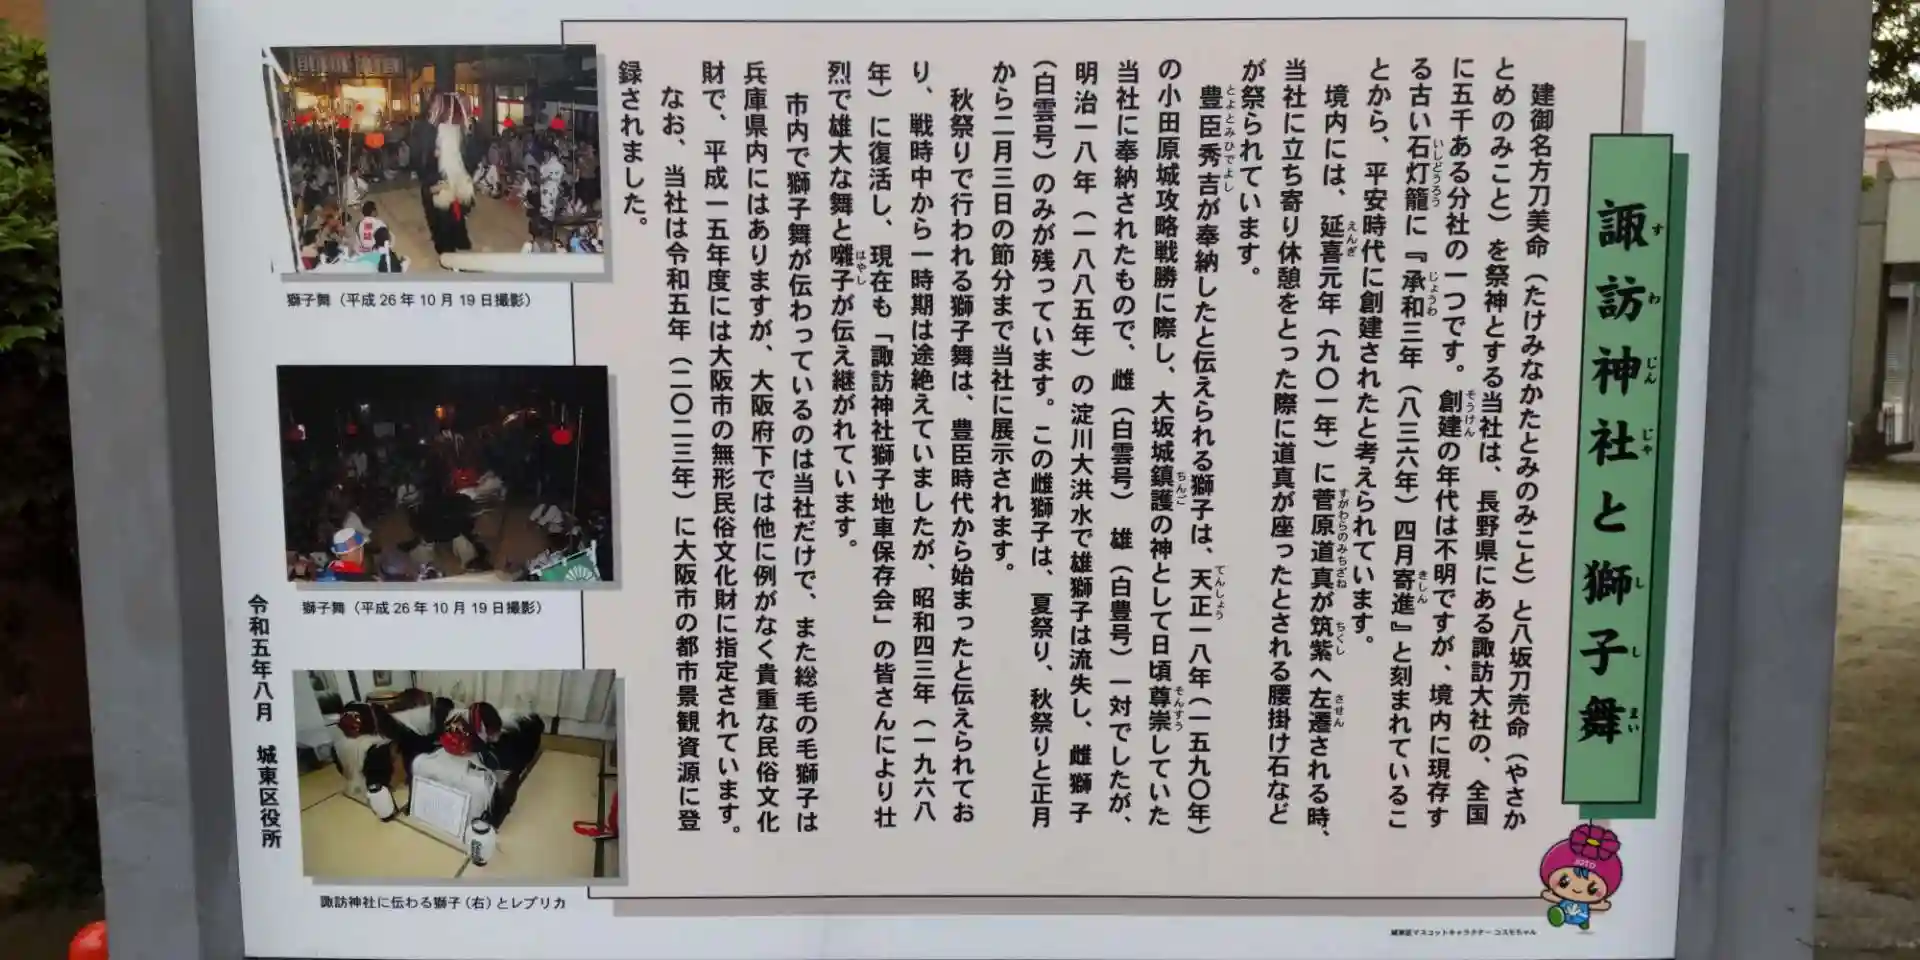 諏訪神社と獅子舞
すわじんじゃとししまい
建御名方刀美命（たけみなかたとみのみこと）と八坂刀売命（やさか
とめのみこと）を祭神とする当社は、長野県にある諏訪大社の、全国
に五千ある分社の一つです。創建の年代は不明ですが、境内に現存す
る古い石灯籠に『承和三年（八三六年）四月寄進』と刻まれているこ
とから、平安時代に創建されたと考えられています。
境内には、延喜元年（九〇一年）に菅原道真が筑紫へ左遷される時、
当社に立ち寄り休憩をとった際に道真が座ったとされる腰掛け石など
が祭られています。
豊臣秀吉が奉納したと伝えられる獅子は、天正一八年（一五九〇年）
の小田原城攻略戦勝に際し、大坂城鎮護の神として日頃尊崇していた
当社に奉納されたもので、雌（白雲号）　雄（白豊号）一対でしたが、
明治一八年（一八八五年）の淀川大洪水で雄獅子は流失し、雌獅子
（白雲号）のみが残っています。この雌獅子は、夏祭り、秋祭りと正月
から二月三日の節分まで当社に展示されます。
秋祭りで行われる獅子舞は、豊臣時代から始まったと伝えられてお
り、戦時中から一時期は途絶えていましたが、昭和四三年（一九六八
年）に復活し、現在も「諏訪神社獅子地車保存会」の皆さんにより壮
烈で雄大な舞と囃子が伝え継がれています。
市内で獅子舞が伝わっているのは当社だけで、また総毛の毛獅子は
兵庫県内にはありますが、大阪府下では他に例がなく貴重な民俗文化
財で、平成一五年度には大阪市の無形民俗文化財に指定されています。
なお、当社は令和五年（二〇二三年）に大阪市の都市景観資源に登
録されました。
獅子舞（平成26年10月19日撮影）
獅子舞（平成26年10月19日撮影）
諏訪神社に伝わる獅子（右）とレプリカ
令和五年八月　城東区役所
JOTO
城東区マスコットキャラクター コスモちゃん